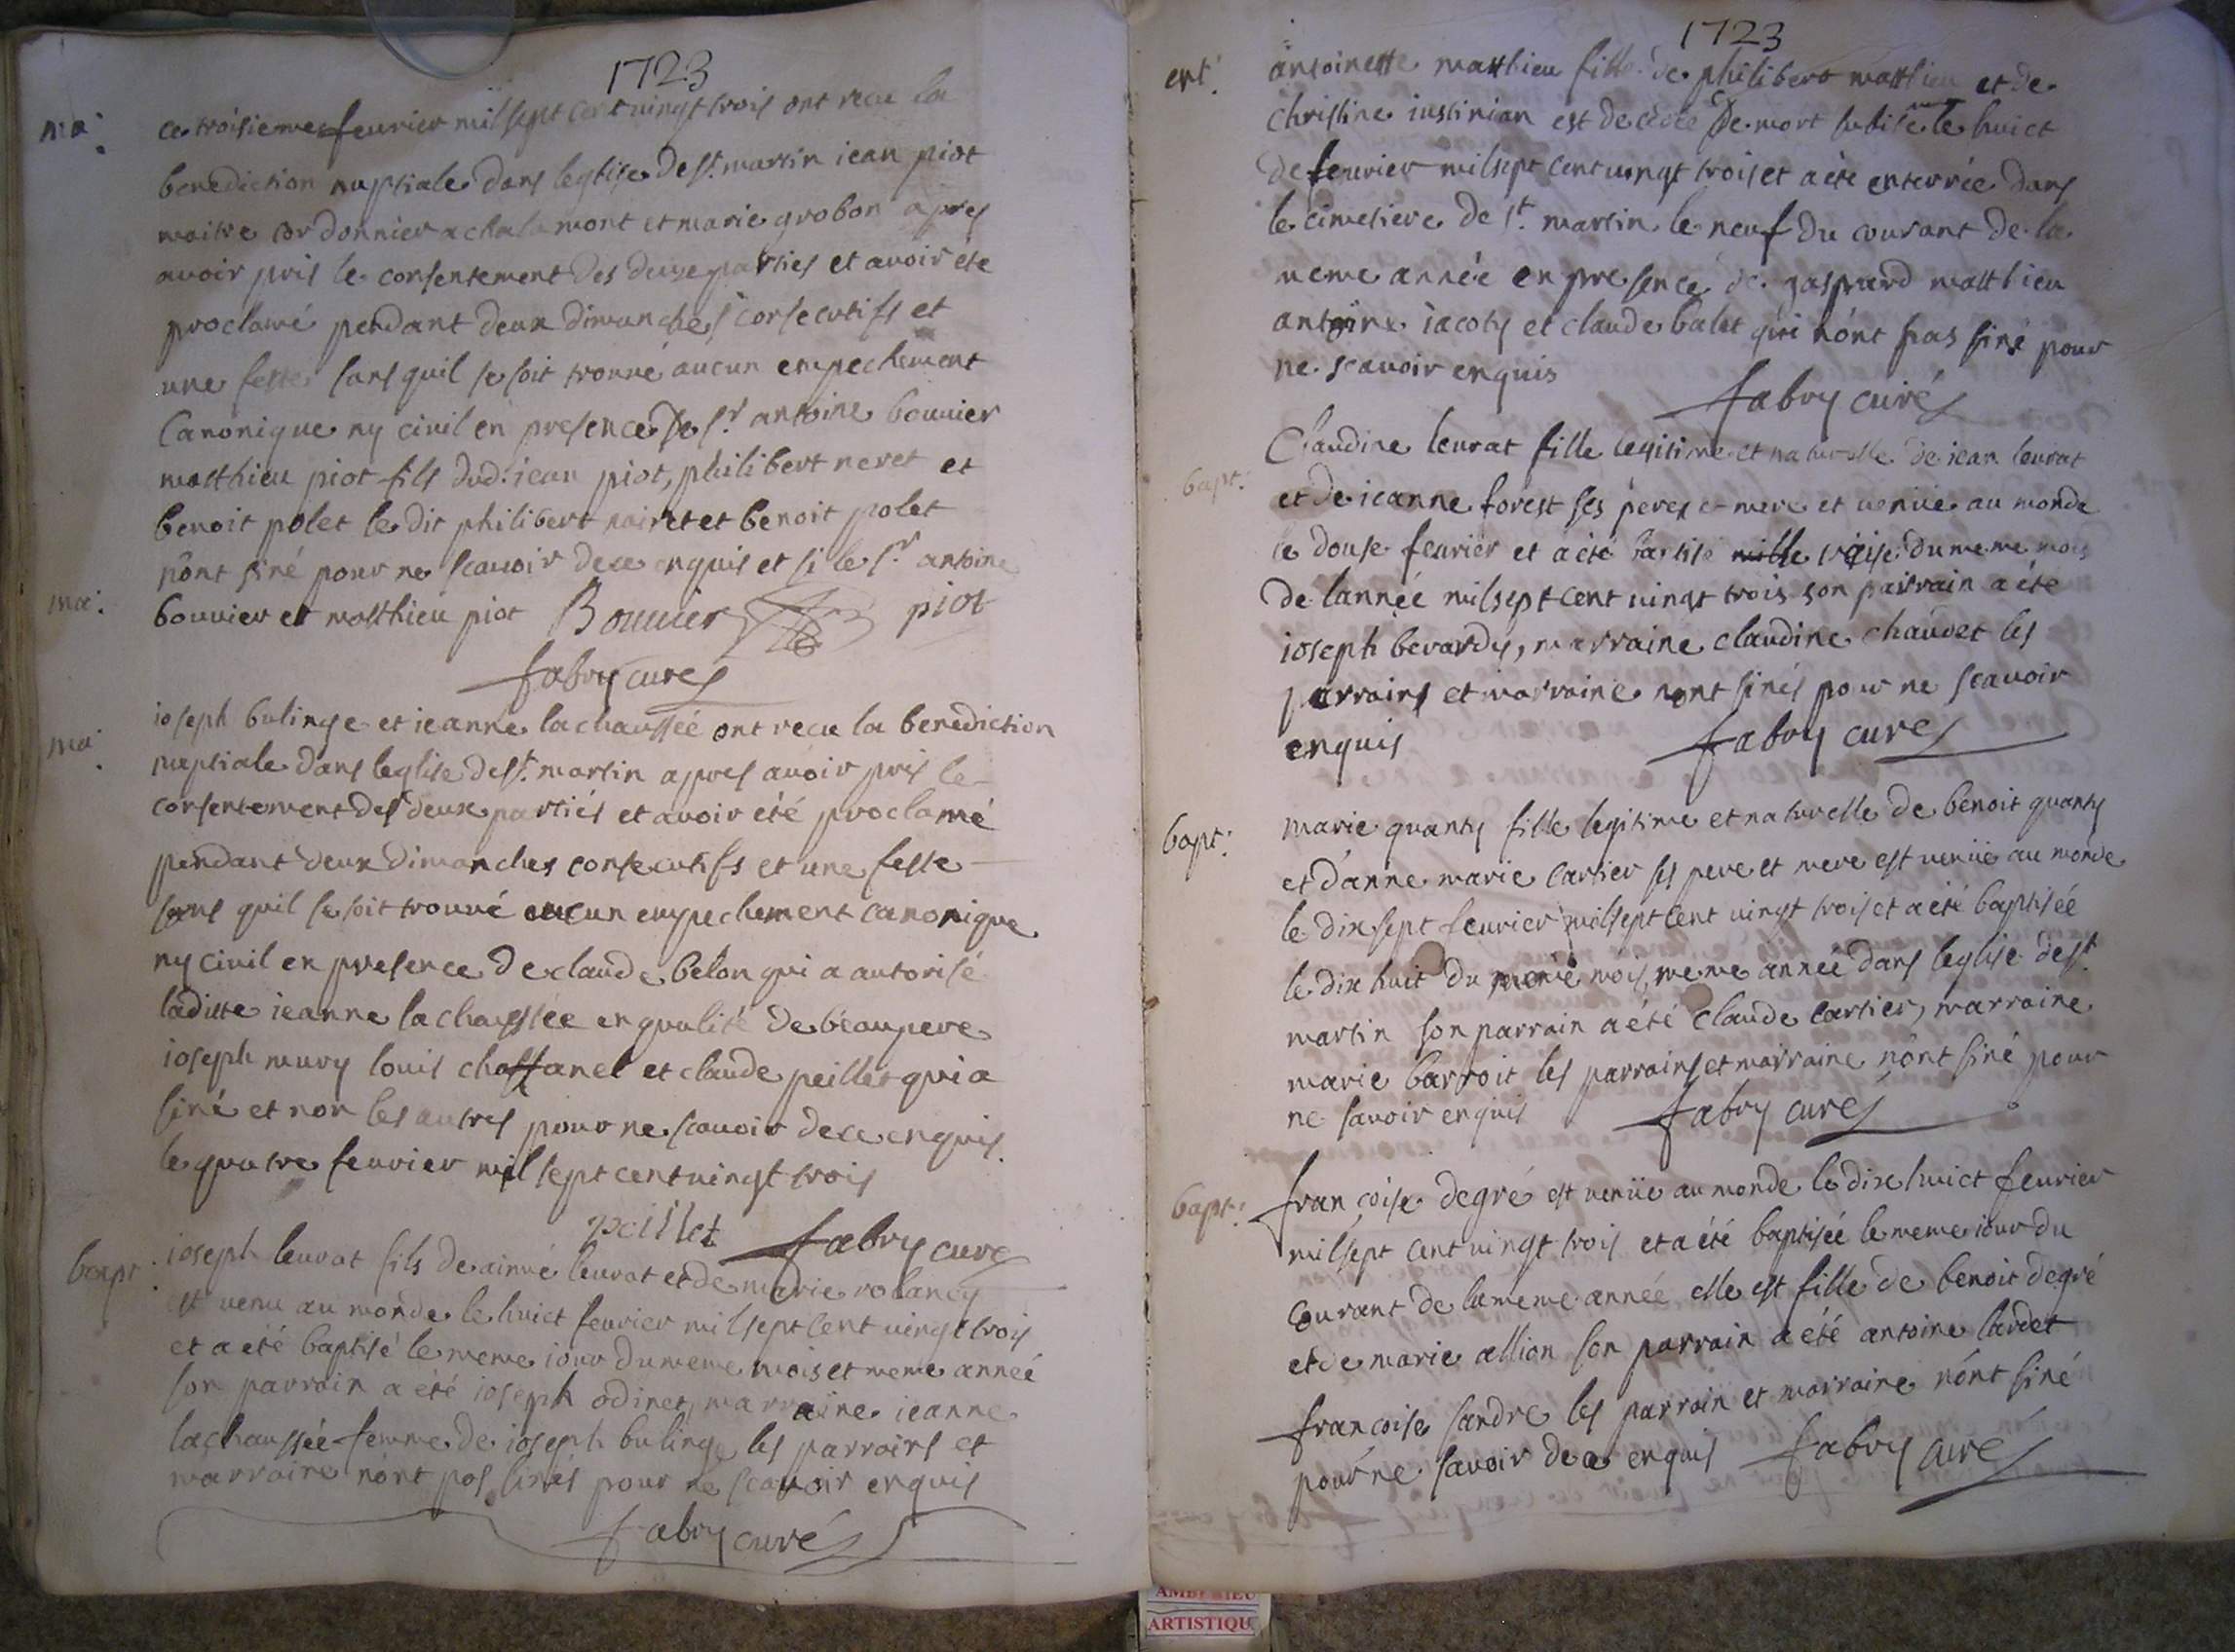 1723
ma:
ce troisieme feurier mil sept cent vingt trois ont recu la
benediction nuptiale dans leglise de st. martin iean piot
maitre cordonnier a chalamont et marie grobon apres
auoir pris le consentement des deux parties et auoir éte
proclamé pendant deux dimanches consecutifs et
une feste sans quil se soit trouué aucun empechement
Canonique ny ciuil en presence de sr. antoine bouuier
matthieu piot fils dud. iean piot, philibert neret et
benoit polet le dit philibert nairet et benoit polet
nónt siné pour ne scauoir de ce enquis et si le sr antoine
ma:
bouuier et matthieu piot Bouuier piot
fabry curé
ma:
ioseph bulinge et ieanne lachaussée ont recu la benediction
nuptiale dans leglise de st. martin apres auoir pris le
consentement des deux partiés et auoir été proclamé
pendant deux dimanches consecutifs et une feste
sans quil se soit trouué aucun empechement canonique
ny ciuil en presence de claude belon qui a autorisé
laditte ieanne lachaussée en qualité de béaupere
ioseph mury louis chaffanel et claude peillet qui a
siné et non les autres pour ne scauoir de ce enquis
le quatre feurier mil sept cent vingt trois
peillet fabry curé
bapt:
ioseph leurat fils de aimé leurat et de marie rolancy
est uenu au monde le huict feurier mil sept cent vingt trois
et a été baptisé le meme iour du meme mois et meme anneé
son parrain a été ioseph odinet, marraine ieanne
lachaussée femme de ioseph bulinge les parrains et
marraine nónt pas sinés pour ne scauoir enquis
fabry curé
1723
ent:
antoinette matthieu fille de philibert matthieu et de
christine iustinian est decedée de mort subite le huict
de feurier mil sept cent vingt trois et a éte enterrée dans
le cimetiere de st. martin le neuf du courant de la
meme année en presence de gaspard matthieu
antoine iacoty et claude balet qui nónt pas siné pour
ne scauoir enquis
fabry curé
bapt:
Claudine leurat fille legitime et naturelle de iean leurat
et de ieanne forest ses peres et mere et uenüe au monde
le douse feurier et a été batisé traise du meme mois
de lannéé mil sept cent vingt trois son parrain a éte
ioseph berardy, marraine claudine chaudet les
parrains et marraine nont sinés pour ne scauoir
enquis
fabry curé
bapt:
marie quanty fille legitime et naturelle de benoit quanty
et dánne marie cartier ses pere et mere est uenüe au monde
le dix sept feurier mil sept cent vingt trois et a été baptisée
le dix huit du meme mois, meme année dans leglise de st.
martin son parrain a été claude cartier, marraine
marie barroit les parrains et marraine nónt siné pour
ne sauoir enquis fabry curé
bapt:
francoise degré est uenüe au monde le dix huict feurier
mil sept cent vingt trois et a été baptisée le meme iour du
courant de la meme année elle est fille de benoit degré
et de marie allion son parrain a été antoine lardet
francoise sandre les parrain et marraine nónt siné
pour ne sauoir de ce enquis fabry curé
ARTISTIQU